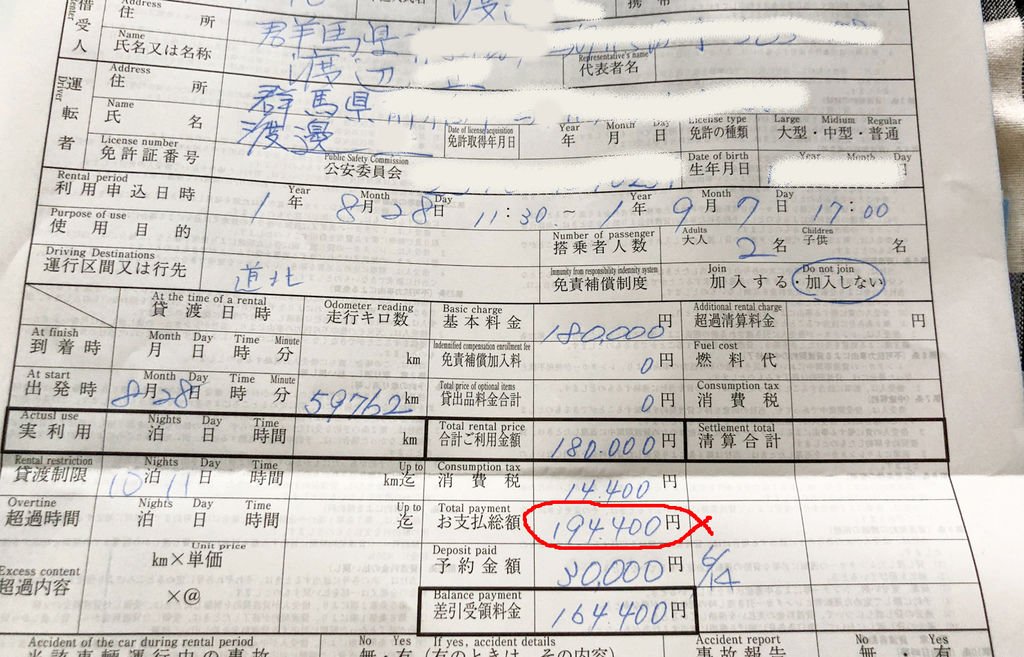 Address
住所
群馬県
借受人
Name
氏名又は名称
渡辺
Representative's name
代表者名
Driver
運転者
Address
住所
群馬県
Name
氏名
渡邊
Date of license acquisition
免許取得年月日
Year Month Day
年 月 日
License type
免許の種類
Large Midium Regular
大型・中型・普通
License number
免許証番号
Public Safety Commission
公安委員会
Date of birth
生年月日
Year Month Day
Rental period
利用申込日時
Year Month Day
1年 8月28日 11:30~1年 9月7日 17:00
Purpose of use
使用目的
Number of passenger
搭乗者人数
Adults Children
大人 2名 子供 名
Driving Destinations
運行区間又は行先
道北
Immunity from responsibility indemnity system
免責補償制度
Join Do not join
加入する・加入しない
At the time of a rental
貸渡日時
Odometer reading
走行キロ数
Basic charge
基本料金
180,000円
Additional rental charge
超過清算料金
円
At finish
到着時
Month Day Time Minute
月 日 時 分
km
Indemnified compensation enrollment fee
免責補償加入料
0円
Fuel cost
燃料代
At start
出発時
Month Day Time Minute
8月28日 時 分
59762km
Total price of optional items
貸出品料金合計
0円
Consumption tax
消費税
Actusl use
実利用
Nights Day Time
泊 日 時間
km
Total rental price
合計ご利用金額
180.000円
Settlement total
清算合計
Rental restriction
貸渡制限
Nights Day Time
10泊 11日 時間
Up to
km迄
Consumption tax
消費税
14.400円
Overtine
超過時間
Nights Day Time
泊 日 時間
Up to
迄
Total payment
お支払総額
194.400円
Excess content
超過内容
Unit price
km×単価
×@
Deposit paid
予約金額
30,000円
6/14
Balance payment
差引受領料金
164.400円
Accident of the car during rental period
当該車輌運行中の事故
No Yes
無・有
If yes, accident details
(有のときは、その内容)
Accident report
事故報告
No Yes
無・有